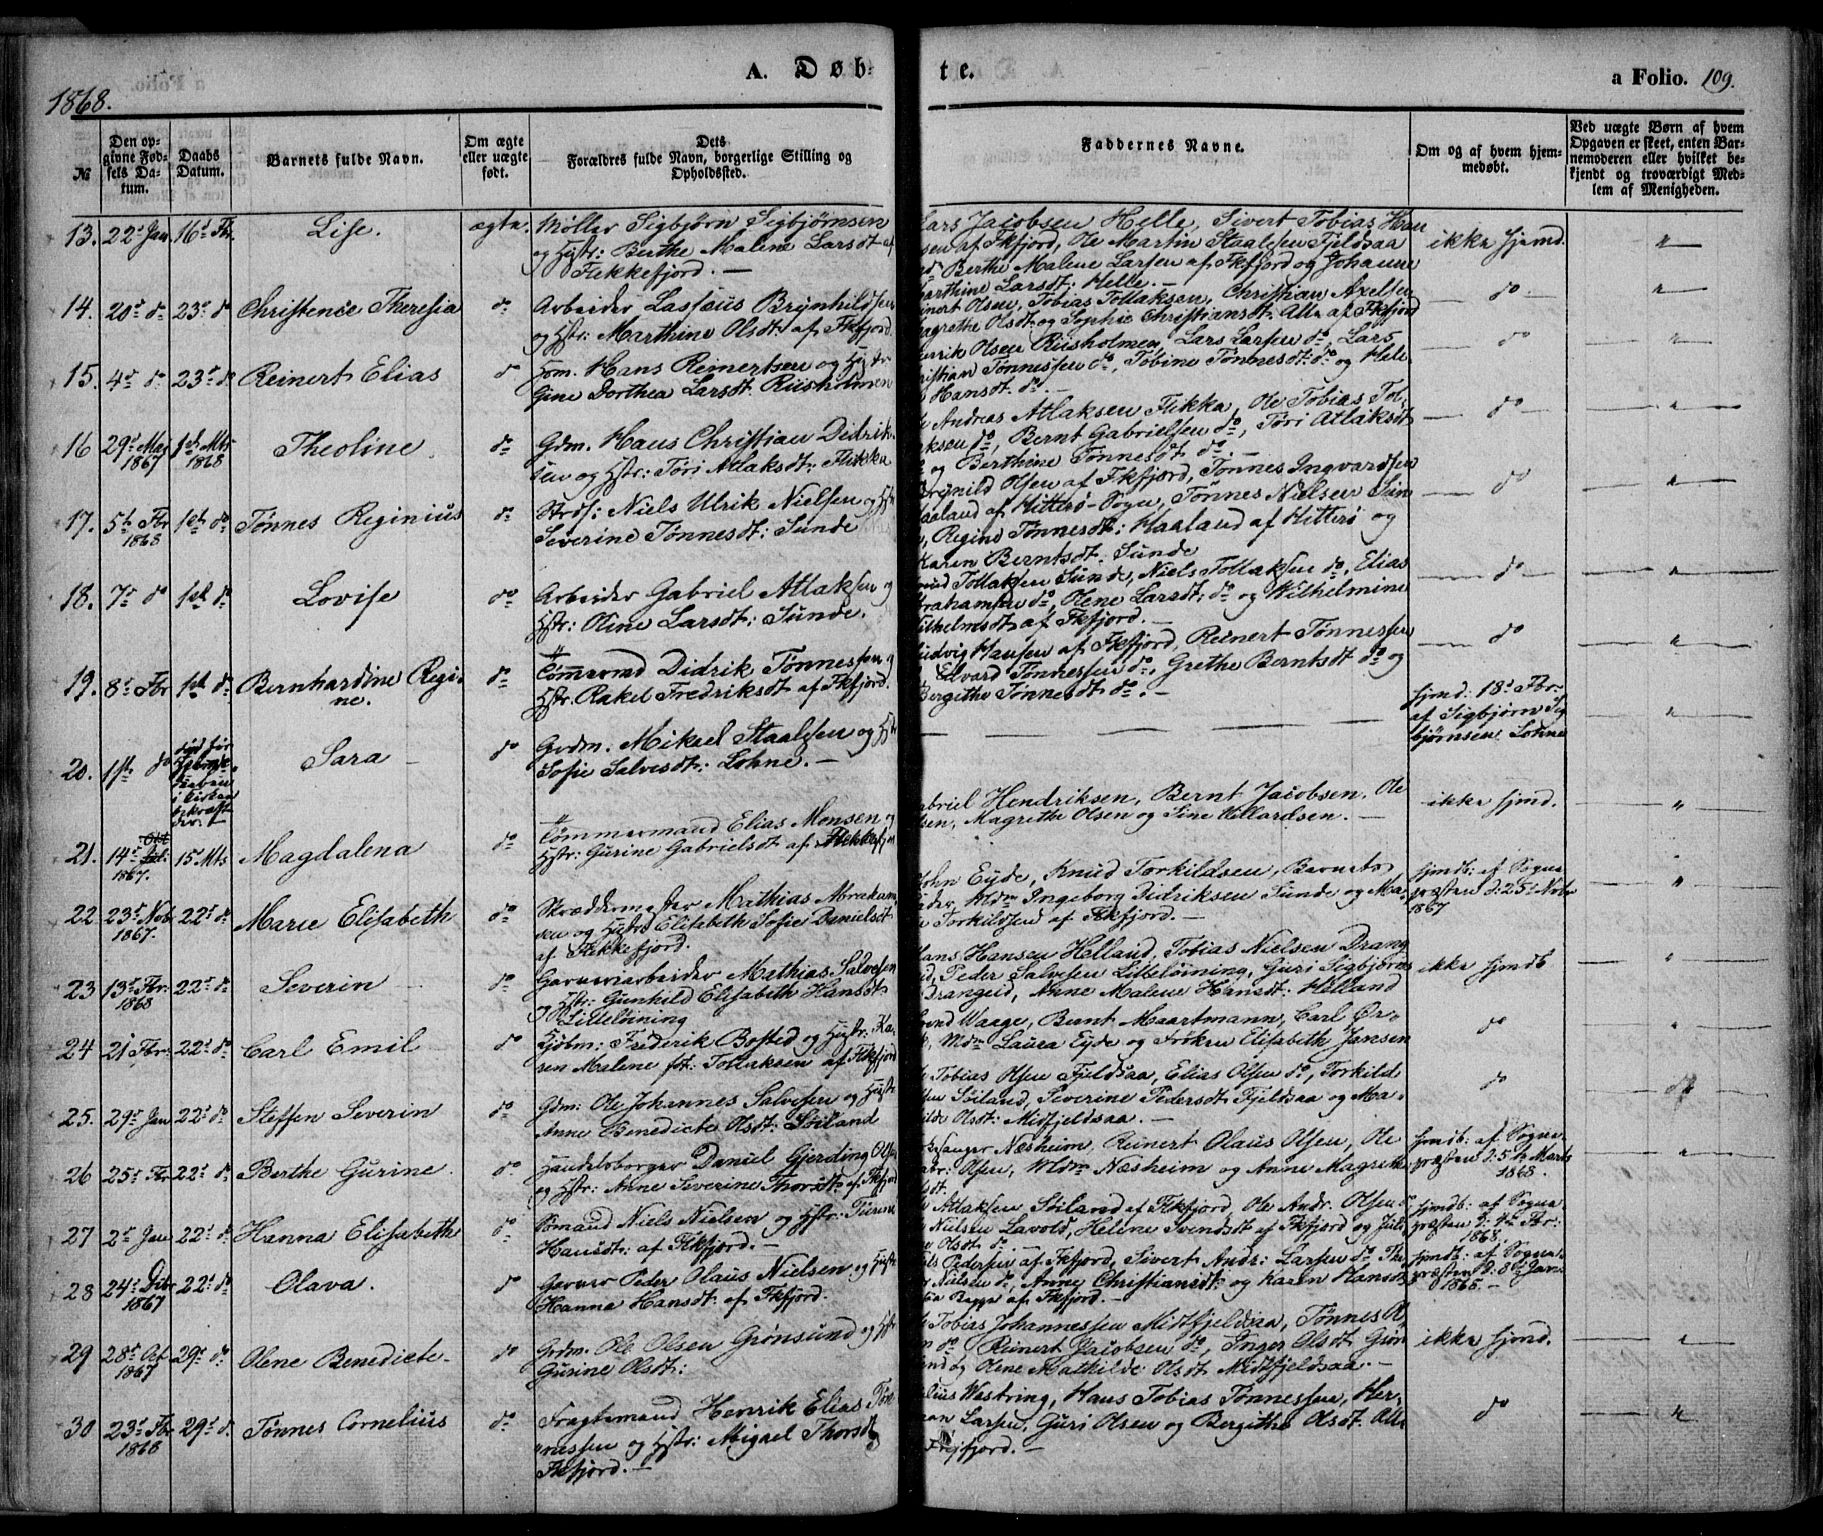 1868.
A. Døb-
te.
a Folio. 109.
№
Den op-
givne Fød-
sels Da-
tum.
Daabs
Datum.
Barnets fulde Navn.
Om ægte
eller uægte
født.
Dets
Forældres fulde Navn, borgerlige Stilling og
Opholdssted.
Faddernes Navne.
Om og af hvem hjem-
medøbt.
Ved uægte Børn af hvem
Opgaven er skeet, enten Bar-
nemoderen eller hvilket be-
kjendt og troværdigt Med-
lem af Menigheden.
13. 22d Jan 16d Fbr. Lise. ægte. Møller Sigbjørn Sigbjørnsen
og Hstr: Berthe Malene Larsdt af
Flekkefjord. —
Lars Jacobsen Helle, Sivert Tobias Han
sen af Fkfjord, Ole Martin Staalesen Fjeldsaa
Berthe Malene Larsen af Fkfjord og Johanne
Marthine Larsdt: Helle. —
ikke hjmd. "
14. 20d do 23d do Christence Theresia do Arbeider Lasseus Brynhildsen
og Hstr: Marthine Olsdt af Fkfjord
Reinert Olsen, Tobias Tollaksen, Christian Axelsen
Magrethe Olsdt og Sophie Christiansdt. Alle af Fkfjord
do "
15. 4d do 23d do Reinert Elias do Gdm. Hans Reinertsen og Hstr
Gine Dorthea Larsdt. Riisholmen
Henrik Olsen Riisholmen, Lars Larsen do, Lars
Christian Tønnessen do, Tobine Tønnesdt: do og Hele
Hansdt. do. —
do "
16 29d Mai
1867 1ste Mts
1868 Theoline. do Gdm. Hans Christian Didrik-
sen og Hstr: Tori Atlaksdt: Flikka
Andreas Atlaksen Flikka, Ole Tobias Tol-
laksen do, Bernt Gabrielsen do, Tori Atlaksdt
og Berthine Tønnesdt do. —
do "
17. 5te Fbr
1868 1ste do Tønnes Reginius do Strds: Niels Ulrik Nielsen og Hstr
Severine Tønnesdt: Sunde
Brynild Olsen af Fkfjord, Tønnes Ingvardsen
Haaland af Hitterø Sogn, Tønnes Nielsen Sun
Regine Tønnesdt: Haaland af Hitterø og
Karen Berntsdt. Sunde
do "
18. 7d do 1ste do Lovise do Arbeider Gabriel Atlaksen og
Hstr: Oline Larsdt: Sunde.
Tollaksen Sunde, Niels Tollaksen do, Elias
Abrahamsen do, Olene Larsdt: do og Wilhelmine
Wilhelmsdt af Fkfjord. —
do "
19. 8d Fbr 1ste do Bernhardine Regi-
ne. do Tømmermd Didrik Tønnessen og
Hstr. Rakel Fredriksdt af Fkfjord.
Ludvig Hansen af Fkfjord, Reinert Tønnessen
Edvard Tønnessen do, Grethe Berntsdt do og
Bergithe Tønnesdt do. —
do "
20. 11te do Sara do Grdm. Mikael Staalesen og Hstr
Sofie Salvesdt: Lohne. —
hjmd: 18d Fbr
af Sigbjørn Sig
bjørnsen Lohne "
21. 14d Oct
1867. 15 Mts Magdalena do Tømmermand Elias Monsen og
Hstr: Gurine Gabrielsdt af Flekkefjord
Gabriel Hendriksen, Bernt Jacobsen, Ole
Olsen, Magrethe Olsen og Sine Villardsen. —
ikke hjmd. "
22. 23d Nob
1867. 22d do Marie Elisabeth do Skræddermester Mathias Abraham
sen og Hstr Elisabeth Sofie Danielsdt
af Flekkefjord.
John Eyde, Knud Torkildsen, Barnets
Fader, Mdm Ingeborg Didriksen Sunde og Ma-
Torkildsen af Fkfjord. —
hjmdb: af Sogne
præsten d: 25d Nob
1867 "
23 13d Fbr
1868 22d do Severin do Garveriarbeider Mathias Salvesen
Hstr: Gunhild Elisabeth Hansdt
Litleløining
Hans Hansen Helland, Tobias Nielsen Drang
eid, Peder Salvesen Litleløining, Guri Sigbjørns
Drangeid, Anne Malene Hansdt: Helland
ikke hjmdb "
24 21 Fbr 22d do Carl Emil do Kjøbm: Frederik Bosted og Hustr: Ka-
sen Malene føt: Tollaksen af Fkfjord
Waage, Bernt Maartmann, Carl Ør-
Mdm Laura Eyde og Frøken Elisabeth Jansen
do "
25. 29d Jan 22d do Steffen Severin do Gdm: Ole Johannes Salvesen og Hustr
Anne Benedicte Olsdt: Soiland
Tobias Olsen Fjeldsaa, Elias Olsen do, Torkild
Olsen Soiland, Severine Pedersdt Fjeldsaa og Ma-
tilde Olsdt: Midfjeldsaa. —
do do
26 25d Fbr 22d do Berthe Gurine. do Handelsborger Daniel Gjerding Olsen
og Hstr: Anne Severine Thorsdt: af Fkfjord
Kirkesanger Næsheim, Reinert Olaus Olsen, Ole
Gabr: Olsen, Mdm Næsheim og Anne Magrethe
hjmdb: af Sogne-
præsten d: 5te Marts
1868. "
27 2d Jan 22d do Hanna Elisabeth do Sømand Niels Nielsen og Hstr: Turine
Hansdt: af Fkfjord. —
Atlaksen Soiland af Fkfjord, Ole Andr. Olsen do
Nielsen Lavold, Helene Svendsdt af Fkfjord og Juli
Olsdt do. —
hjmdb: af Sogne
præsten d: 4de Fbr:
1868.
28 24d Dcbr
1867 22d do Olava. do Garver Peder Olaus Nielsen og Hustr
Hanna Hansdt: af Fkfjord.
Pedersen af Fkfjord, Sivert Andr: Larsen do The
Nielsen do, Anne Christiansdt og Karen Hansdt
Bagge af Fkfjord. —
hjmdb: af Sogne-
præsten d: 8de Jan:
1868. —
29 28d Oct
1867 29d do Olene Benedicte. do Grdm. Ole Olsen Grønsund og Hstr
Gurine Olsdt:
Tobias Johannessen Midtfjeldsaa, Tønnes O
do Reinert Jacobsen do, Inger Olsdt Grøn
sund og Olene Mathilde Olsdt Midtfjeldsaa. —
ikke hjmd. "
30 23d Fbr
1868 29d do Tønnes Cornelius do Fragtemand Henrik Elias Tøn
nessen og Hstr: Abigael Thorsdt
Fkfjord. —
Westring, Hans Tobias Tønnessen, Her-
man Larsen, Guri Olsen og Bergithe Olsdt. Alle
Fkfjord. —
do "